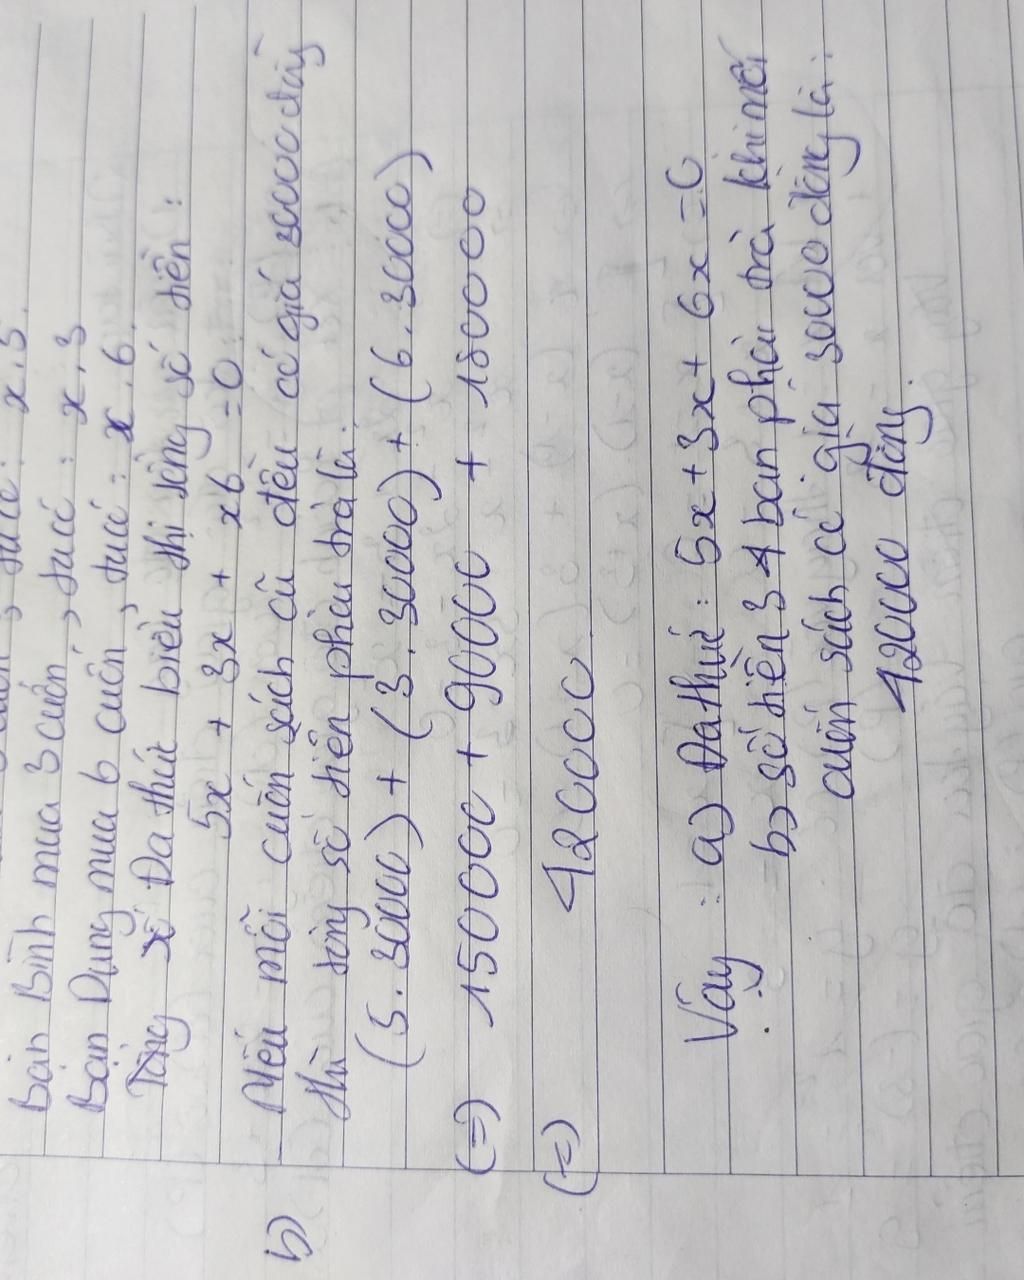 , ta có: x.5
Bạn Bình mua 3 cuốn, ta có: x.3
Bạn Dung mua 6 cuốn, ta có: x.6
Tổng Đa thức biểu thị tổng số tiền:
5x + 3x + x6 = 0
b) Nếu mỗi cuốn sách cũ đều có giá 3000 đồng
thì tổng số tiền phải trả là:
(5.3000) + (3.3000) + (6.3000)
(=) 15000 + 9000 + 18000
(=) 42000
Vậy: a) Đa thức: 5x + 3x + 6x = 0
b) số tiền 3 bạn phải trả khi mỗi
cuốn sách có giá 3000 đồng là:
42000 đồng.